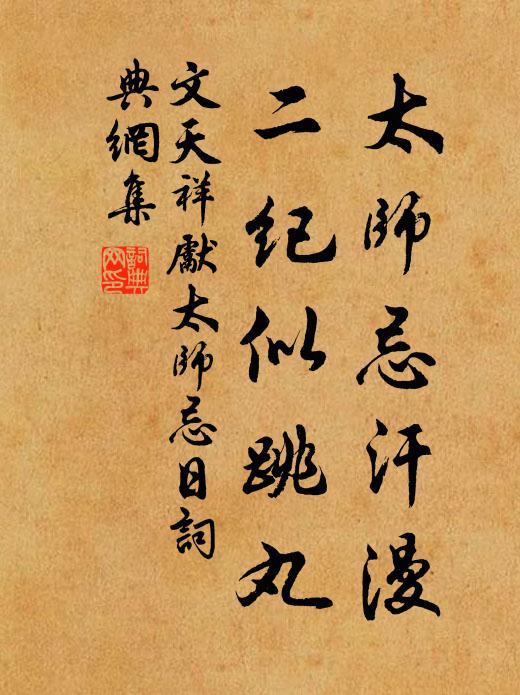 太師忌汗漫
二纪似跳丸
文天祥獻太師忌日詞
典網集
詞典網印